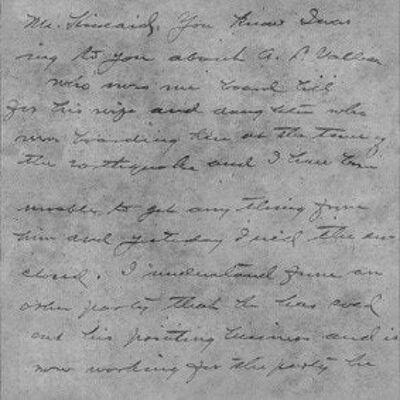 Mr. Kincaid, You know I was
ing to you about A. P. Vallier
who owes me board bill
for his wife and daughter who
were boarding here at the time of
the earthquake and I have been
unable to get any thing from
him and yesterday I rec'd the en
closed. I understand from an
other party that he has sold
out his painting business and is
now working for the party he